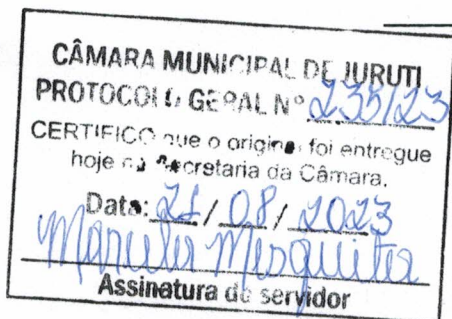 CÂMARA MUNICIPAL DE JURUTI
PROTOCOLO GERAL Nº 235/23
CERTIFICO que o original foi entregue
hoje na Secretaria da Câmara.
Data: 21 / 08 / 2023
Mesquita
Assinatura do servidor